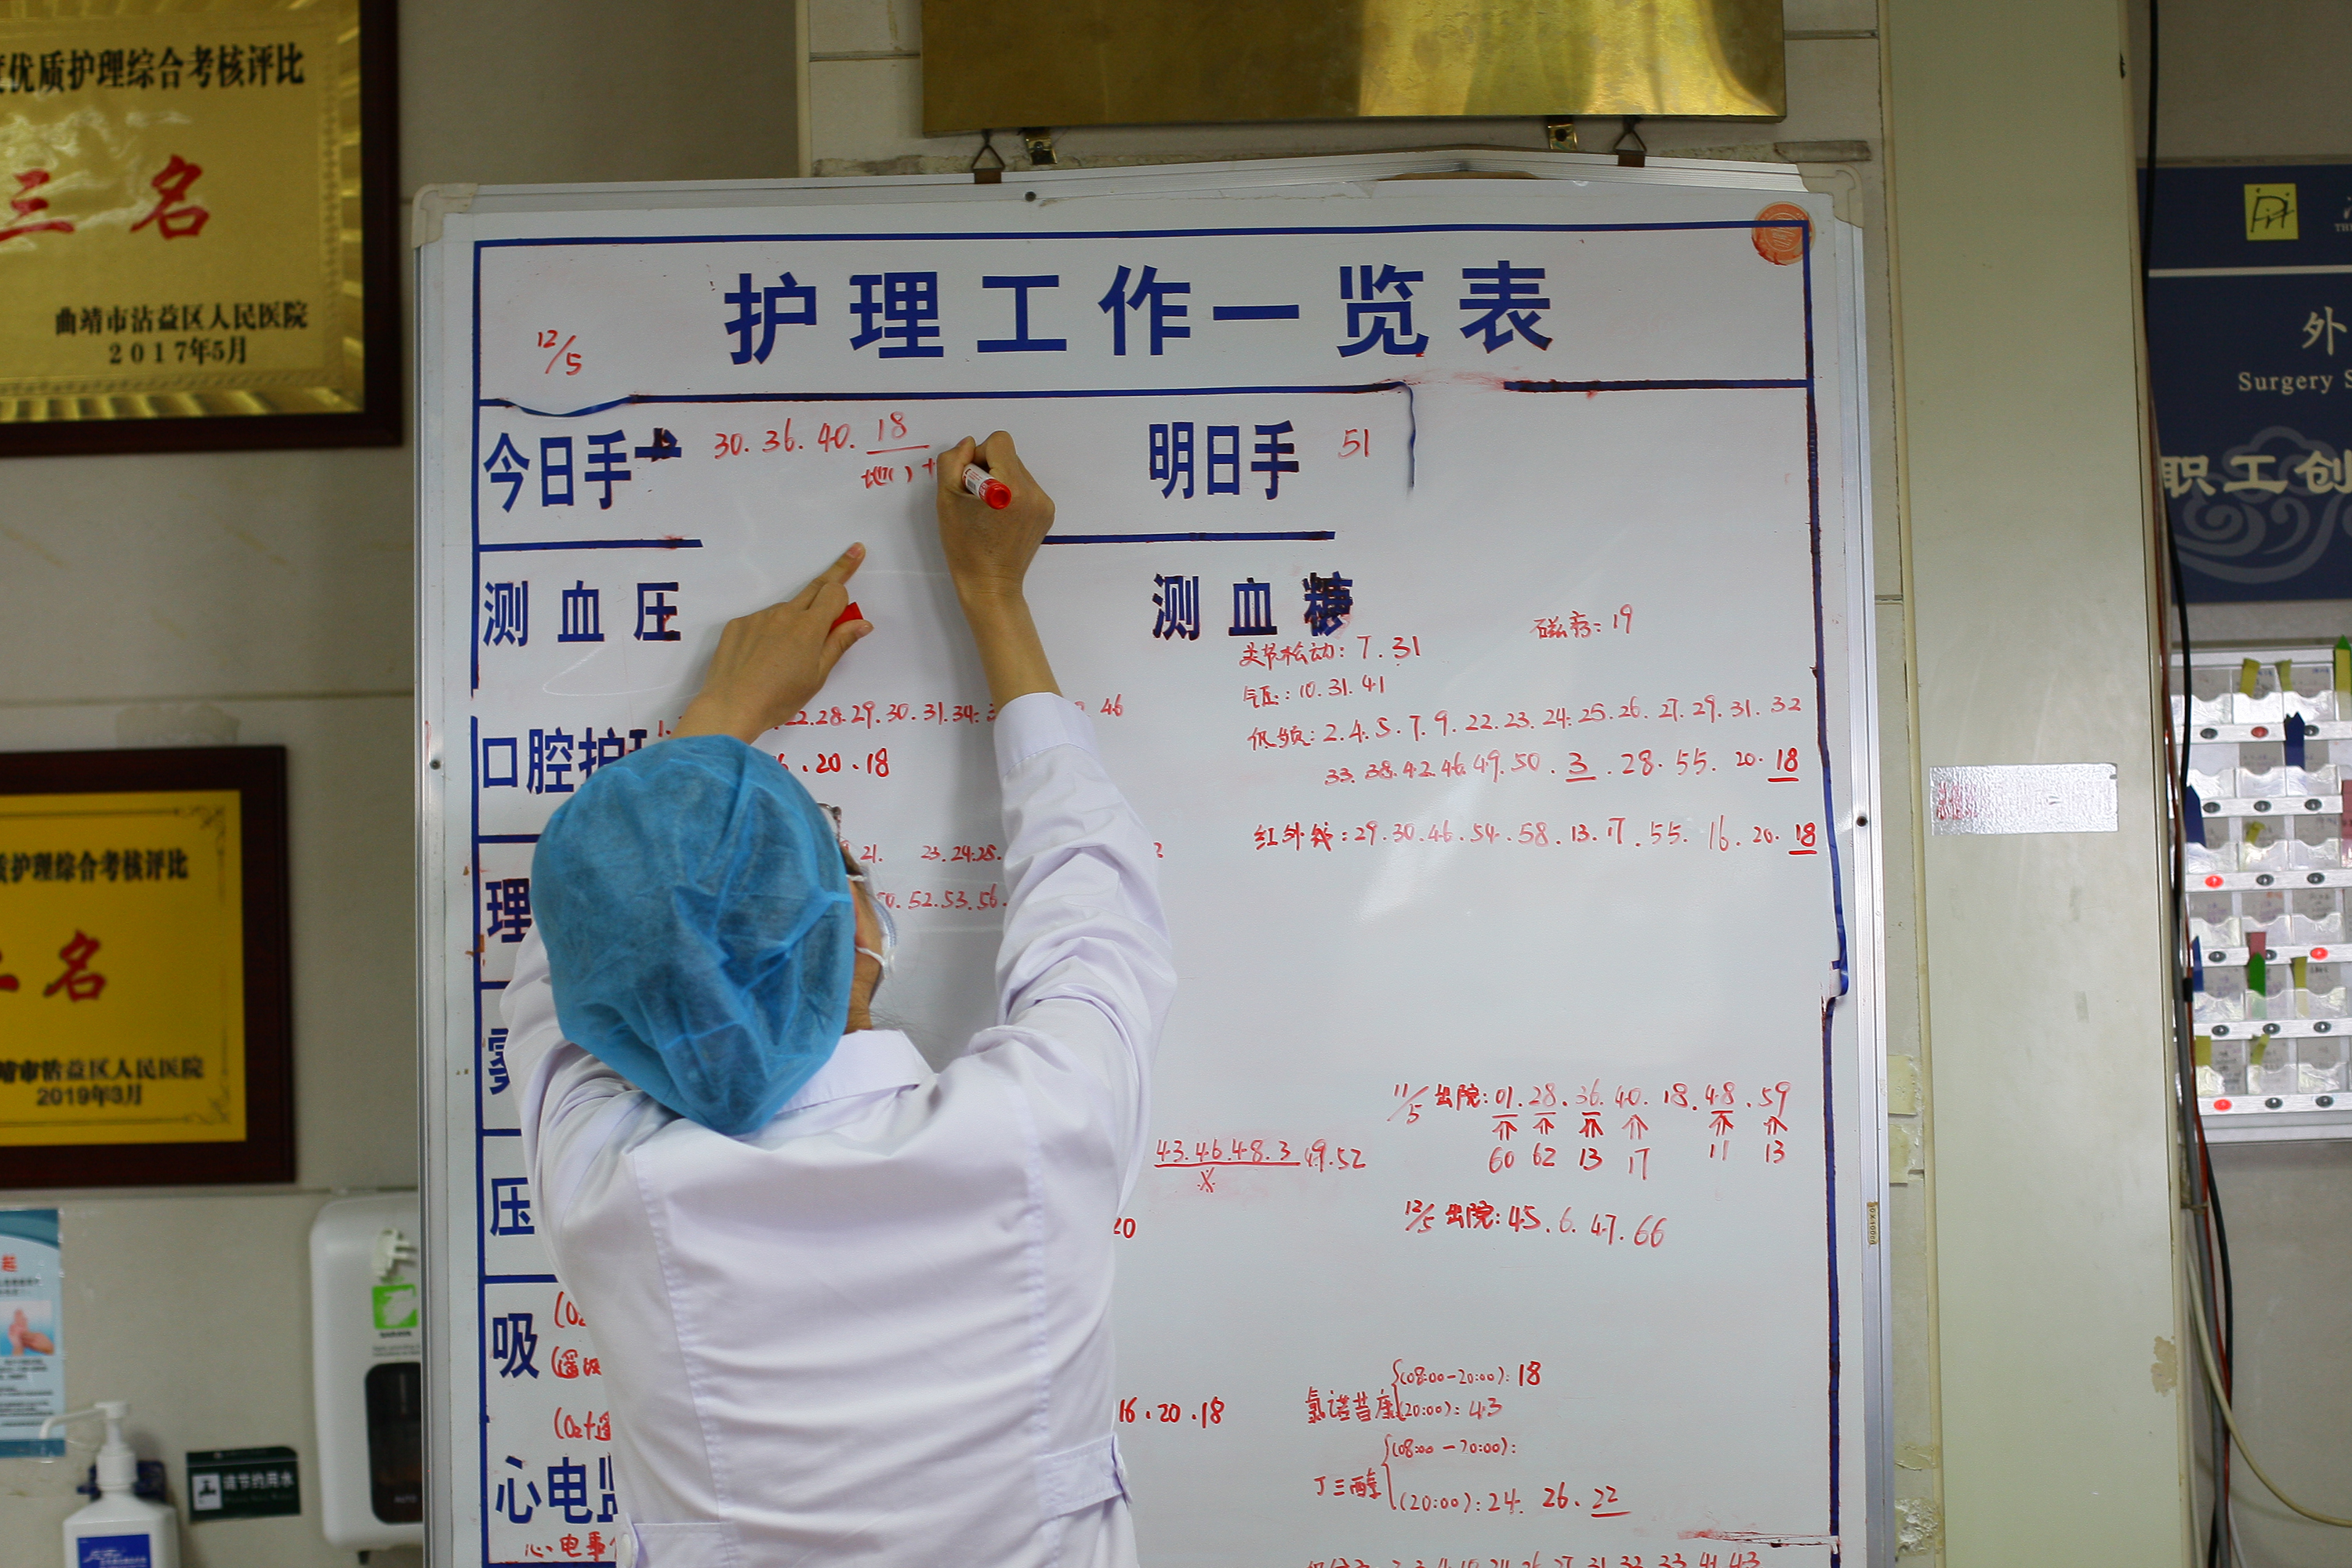 优质护理综合考核评比
三名
曲靖市沾益区人民医院
2017年5月
护理工作一览表
12/5
今日手
30.36.40.18
明日手
51
测血压
测血糖
磁疗：19
关节松动：7.31
气压：10.31.41
低频：2.4.5.7.9.22.23.24.25.26.27.29.31.32
33.38.42.46.49.50.3.28.55.20.18
红外线：29.30.46.54.58.13.17.55.16.20.18
口腔护
22.28.29.30.31.34.
46
.20.18
理
21. 23.24.25.
0.52.53.56.
压
43.46.48.3 49.52
20
11/5 出院：01.28.36.40.18.48.59
60 62 13 17 11 13
12/5 出院：45.6.47.66
吸
(O₂
16.20.18
氯诺昔康
(08:00-20:00)：18
(20:00)：43
丁三醇
(08:00-20:00)：
(20:00)：24. 26.22
心电监
心电
护理综合考核评比
名
靖市沾益区人民医院
2019年3月
请节约用水
外
Surgery S
职工创